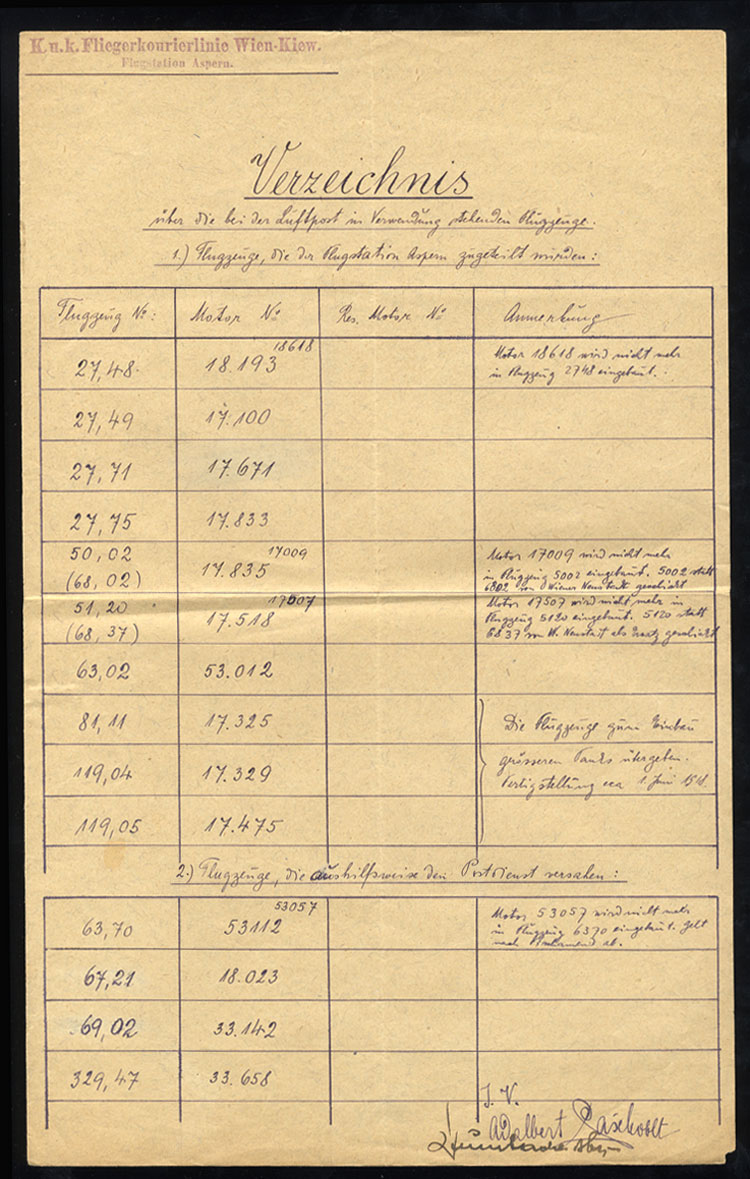 K.u.k. Fliegerkourierlinie Wien-Kiew.
Flugstation Aspern.
Verzeichnis
über die bei der Luftpost in Verwendung stehenden Flugzeuge.
1.) Flugzeuge, die der Flugstation Aspern zugeteilt wurden:
Flugzeug No: Motor No Res. Motor No Anmerkung
27,48. 18.193 18618 Motor 18618 wird nicht mehr
in Flugzeug 2748 eingebaut.
27,49 17.100
27,71 17.671
27,75 17.833
50,02 17009 Motor 17009 wird nicht mehr
(68,02) 17.835 in Flugzeug 5002 eingebaut. 5002 statt
6802 von Wiener Neustadt geschickt
51,20 17507 Motor 17507 wird nicht mehr in
(68,37) 17.518 Flugzeug 5120 eingebaut. 5120 statt
6837 von W. Neustadt als Ersatz geschickt
63,02 53.012
81,11 17.325 Die Flugzeuge zum Einbau
119,04 17.329 grösseren Tanks übergeben.
Fertigstellung cca 1. Juni
119,05 17.475
2.) Flugzeuge, die aushilfsweise den Postdienst versahen:
63,70 53112 53057 Motor 53057 wird nicht mehr
in Flugzeug 6370 eingebaut. Geht
nach ab.
67,21 18.023
69,02 33.142
329,47 33.658
I. V.
Adalbert